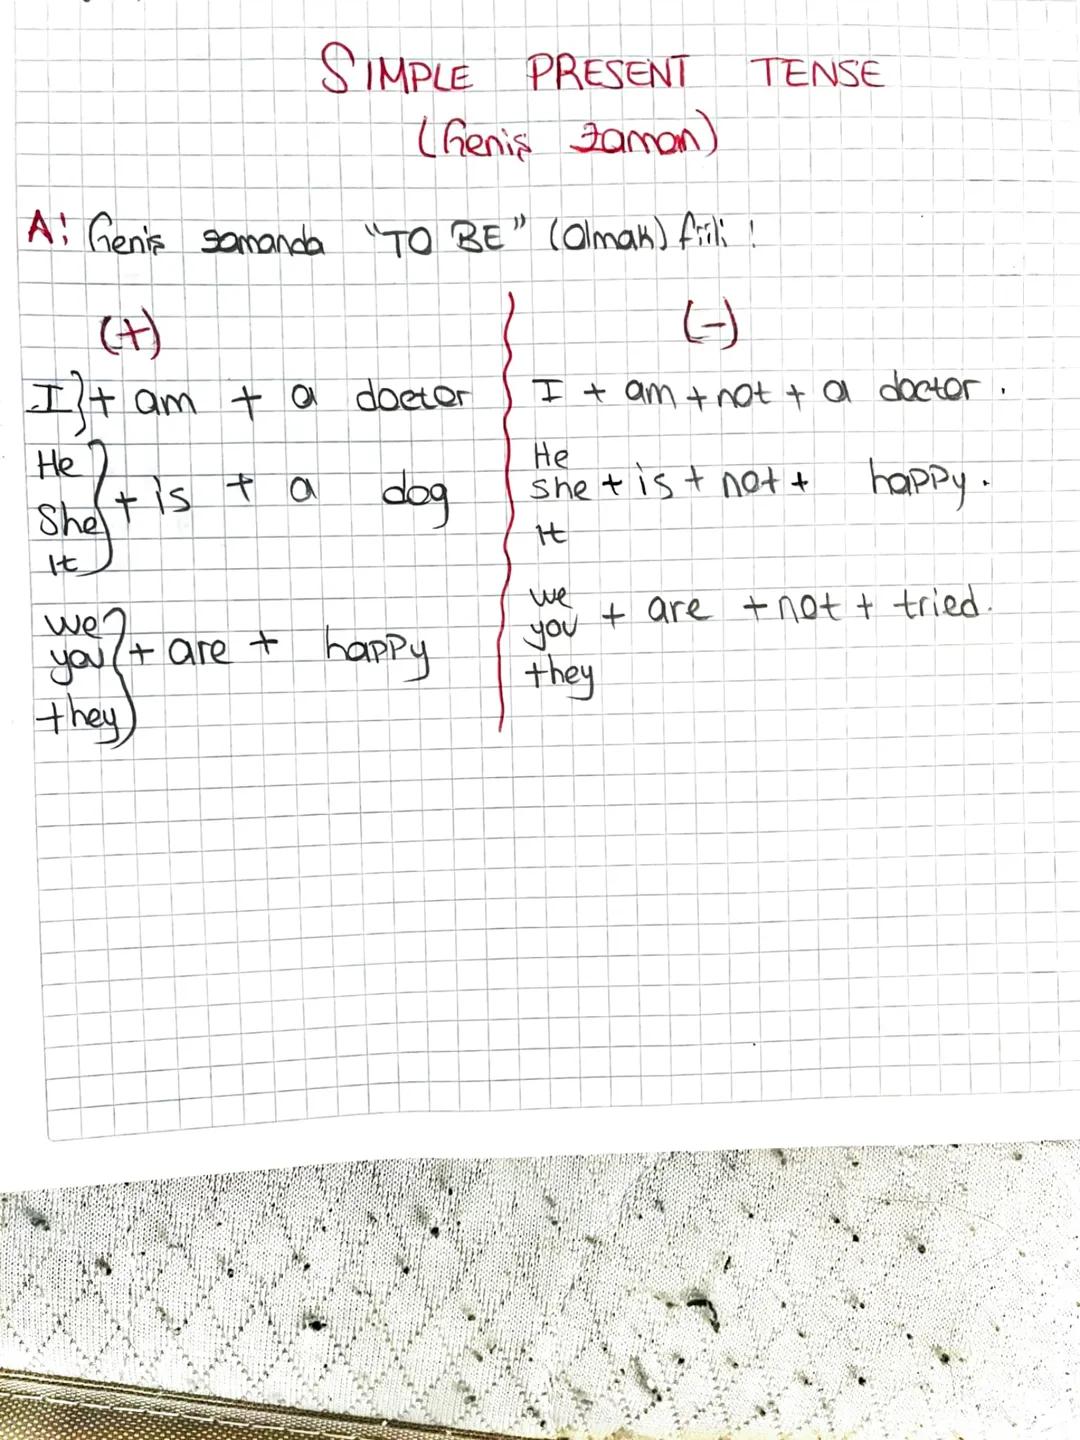 SIMPLE PRESENT TENSE
(Geniş zaman)
A: Geniş zamanda "TO BE" (Olmak) fiili !
(+)
I } + am + a doctor
He
She + is + a dog
It
we
you + are + happy
they
(-)
I + am + not + a doctor .
He
she + is + not + happy .
It
we
you + are + not + tried .
they